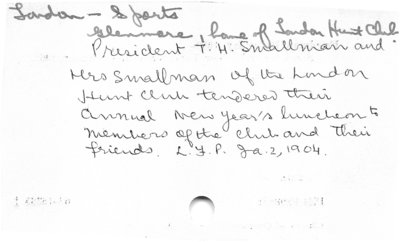 London - Sports
Glenmore, home of London Hunt Club.
President T. H. Smallman and
Mrs Smallman of the London
Hunt Club tendered their
annual New Year's luncheon to
members of the club and their
friends. L.F.P. Ja. 2, 1904.